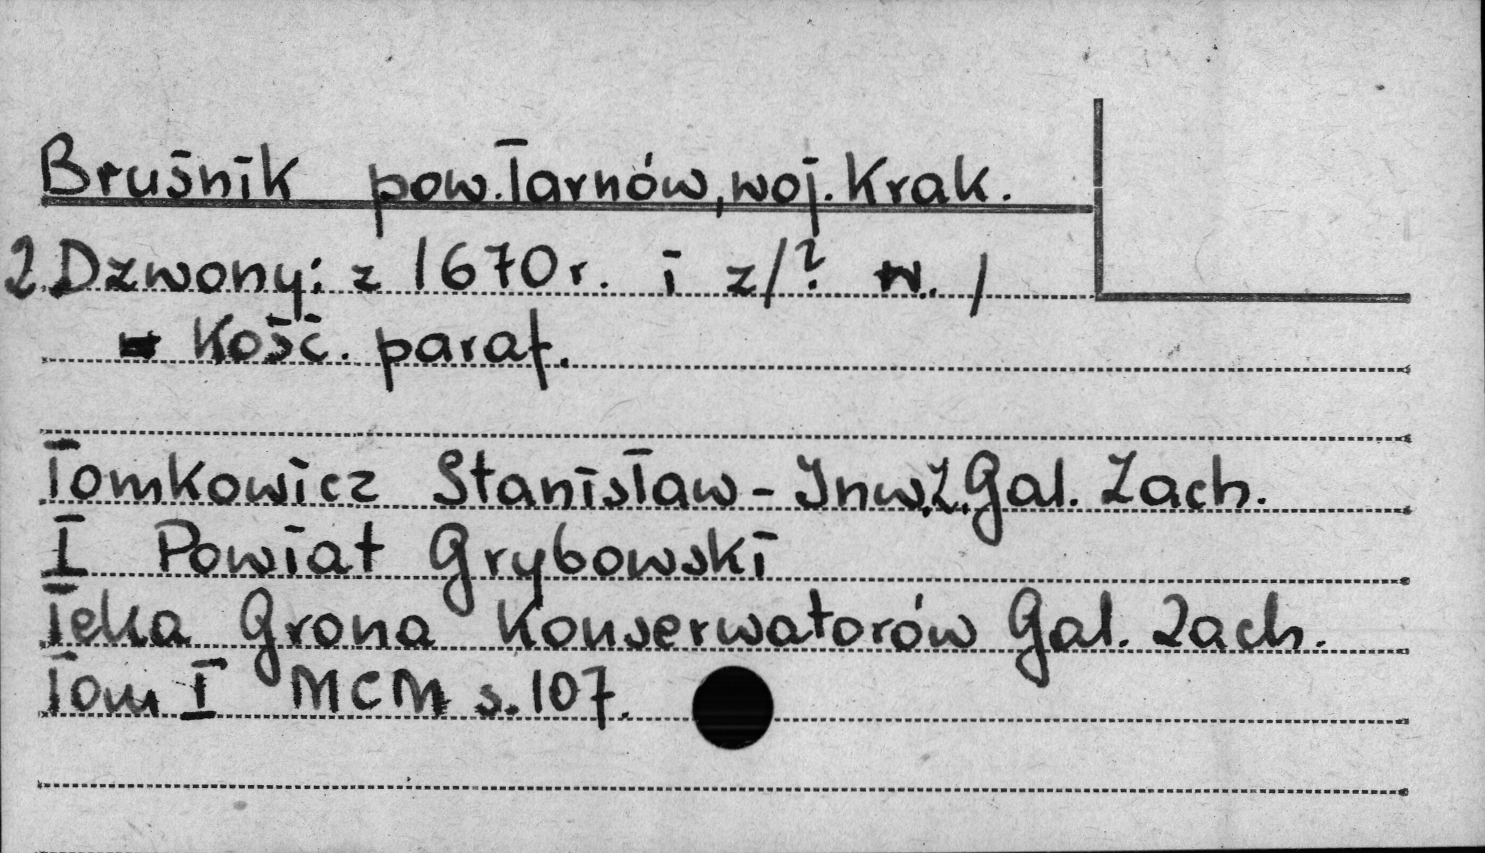 Bruśnik pow. Tarnów, woj. Krak.
2 Dzwony: z 1670 r. i z /? w. /
Kość. paraf.
Tomkowicz Stanisław - Inw. Z. Gal. Zach.
I Powiat Grybowski
Teka Grona Konserwatorów Gal. Zach.
Tom I MCM s. 107.